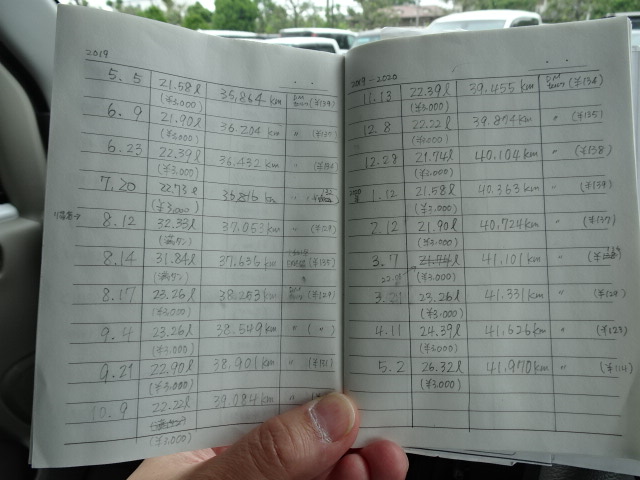 2019
5.5 21.58ℓ 35,864 km DM town (¥139)
(¥3,000)
6.9 21.90ℓ 36,204 km 〃
(¥3,000)
6.23 22.39ℓ 36,432 km 〃
(¥3,000)
7.20 22.73ℓ 〃
(¥3,000)
8.12 32.33ℓ 37,053 km 〃 (¥129)
(満タン)
8.14 31.84ℓ 37,635 km (¥135)
(満タン)
8.17 23.26ℓ 38,253 km DM town (¥129)
(¥3,000)
9.4 23.26ℓ 38,549 km 〃 (〃)
(¥3,000)
9.21 22.90ℓ 38,901 km 〃 (¥131)
(¥3,000)
10.9 22.22ℓ 39,084 km 〃
(¥3,000)
2019-2020
11.13 22.39ℓ 39,455 km DM town (¥134)
(¥3,000)
12.8 22.22ℓ 39,874 km 〃 (¥135)
(¥3,000)
12.28 21.74ℓ 40,104 km 〃 (¥138)
(¥3,000)
2020 1.12 21.58ℓ 40,363 km 〃 (¥139)
(¥3,000)
2.12 21.90ℓ 40,724 km 〃 (¥137)
(¥3,000)
3.7 21.74ℓ 41,101 km 〃
(¥3,000)
3.21 23.26ℓ 41,331 km 〃 (¥129)
(¥3,000)
4.11 24.39ℓ 41,626 km 〃 (¥123)
(¥3,000)
5.2 26.32ℓ 41,970 km 〃 (¥114)
(¥3,000)